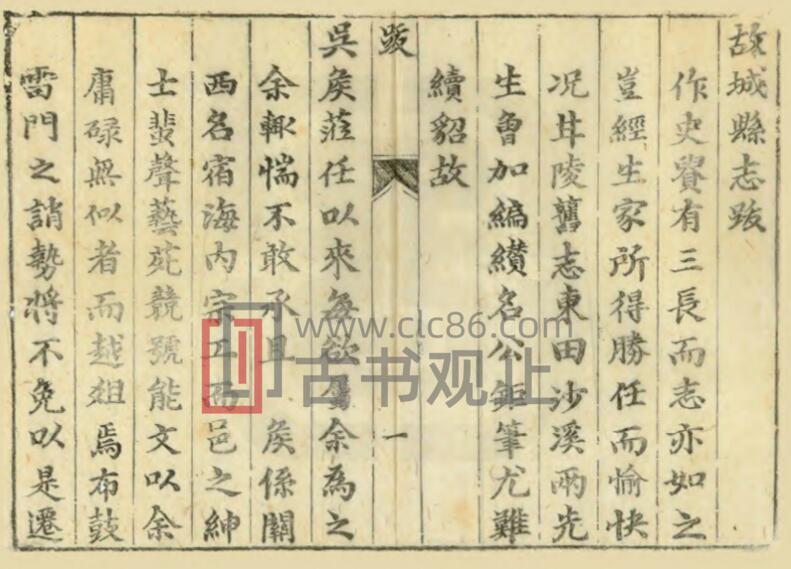 故城縣志跋
作史貴有三長而志亦如之
豈經生家所得勝任而愉快
况甘陵舊志東田沙溪兩先
生曾加編纘名公鉅筆尤難
續貂故
跋
一
吳矦蒞任以來每欲屬余為之
余輙惴不敢承且 矦係關
西名宿海内宗工而邑之紳
士蜚聲藝苑競號能文以余
庸碌無似者而越俎焉布鼓
雷門之誚勢將不免以是遷
www.clc86.com
古书观止